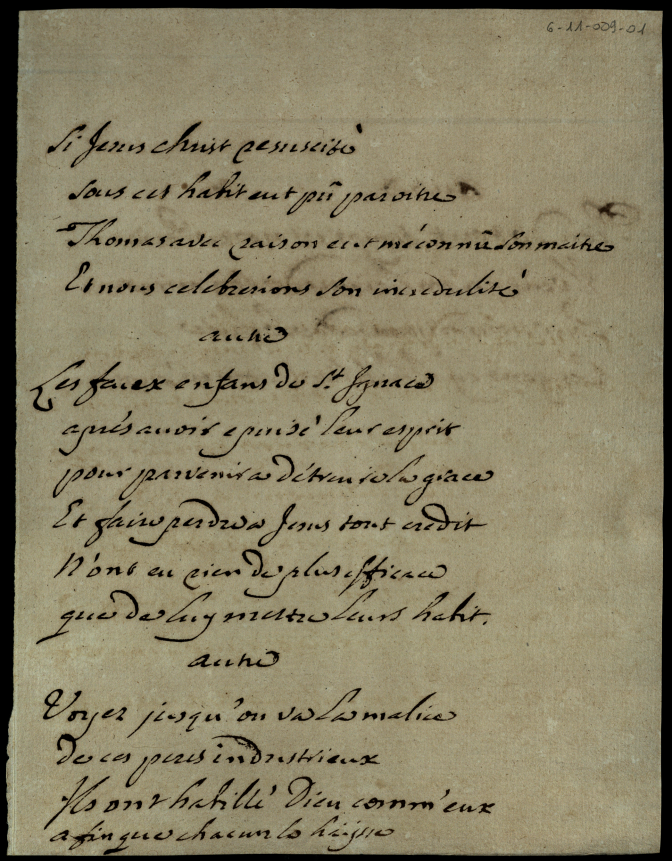 6-11-009-01
Si Jesus christ resuscité
sous cet habit eut pû paroitre
Thomas avec raison eut méconnû son maitre
Et nous celebrerions son incredulité
autre
Les faux enfans de St Ignace
aprés avoir epuisé leur esprit
pour parvenir a détruire la grace
Et faire perdre a Jesus tout credit
N'ont eu rien de plus efficace
que de luy mettre leurs habit.
autre
Voyez jusqu'ou va la malice
de ces peres industrieux
Ils ont habillé Dieu comm'eux
afin que chacun le haïsse